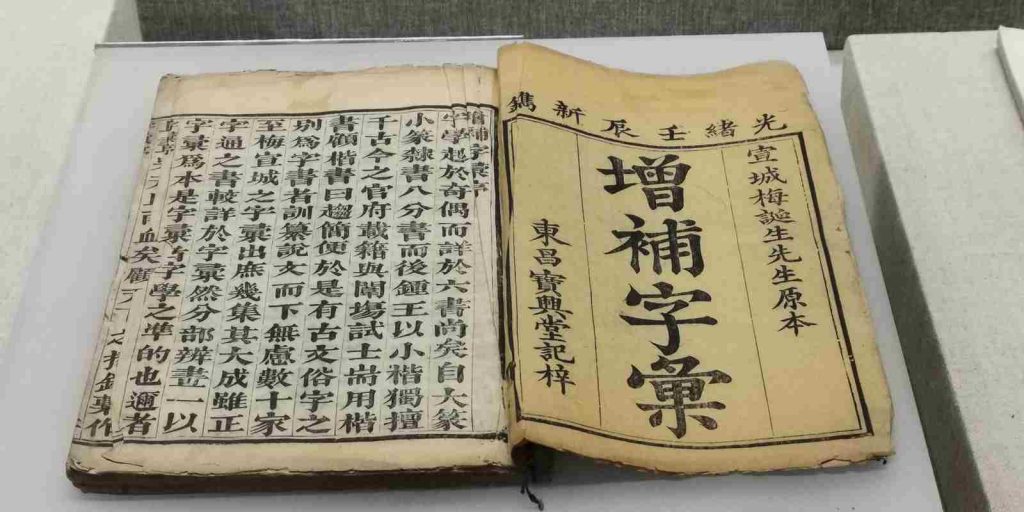 光緒壬辰新鐫
宣城梅誕生先生原本
增補字彙
東昌寶興堂記梓
增補字彙序
字學起於奇偶而詳於六書尚矣自大篆
小篆隸書八分書而後鍾王以小楷獨擅
千古今之官府載籍與闈場試士耑用楷
書顧楷書日趨簡便於是有古文俗字之
別爲字書者訓纂說文而下無慮數十家
至梅宣城之字彙出庶幾集其大成雖正
字通之書較詳於字彙然分部辨畫一以
字彙爲本是字彙者字學之準的也邇者